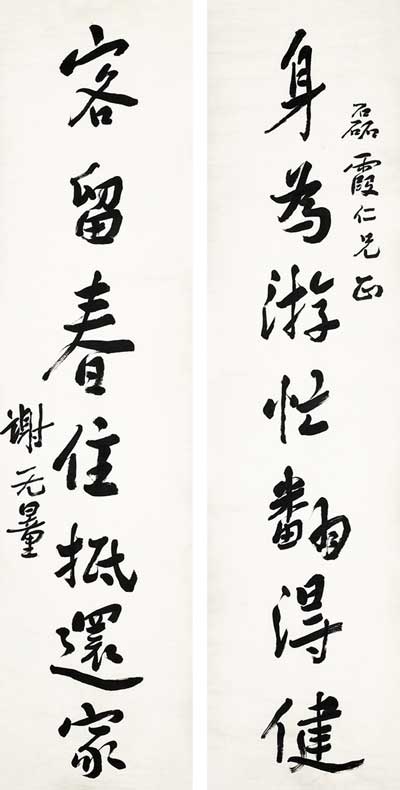 磊霞仁兄正
身為游忙翻得健
客留春住抵還家
謝无量